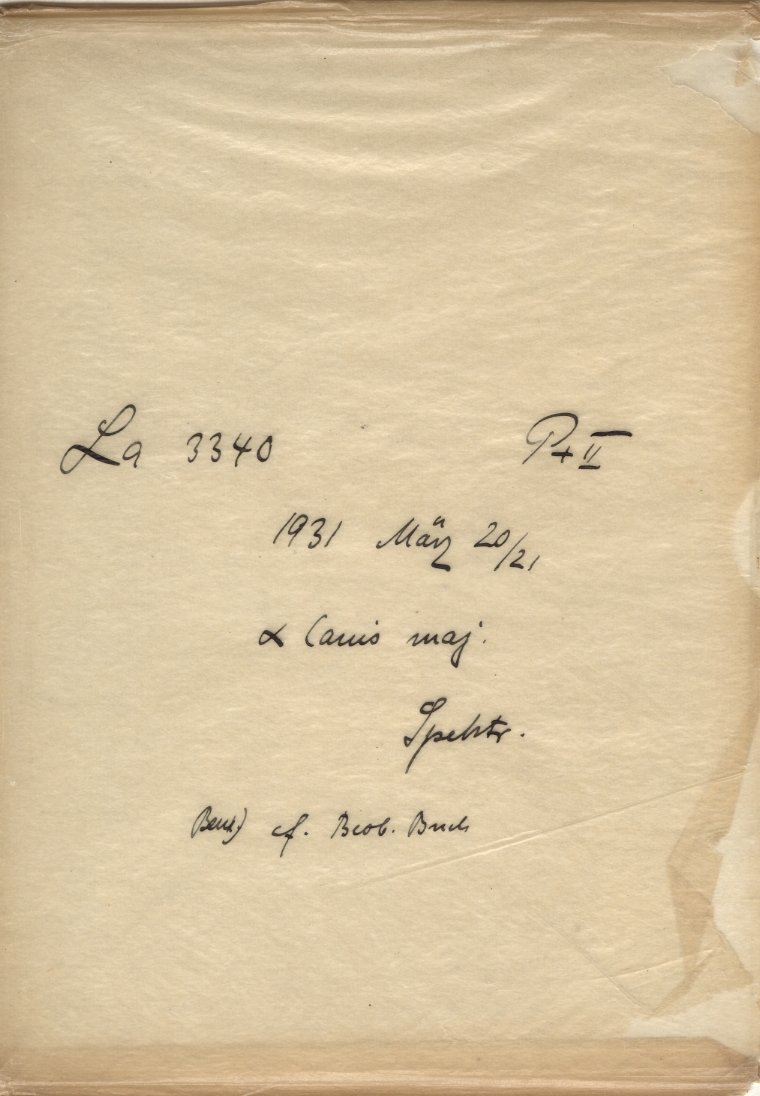 La 3340 P+II
1931 März 20/21
α Canis maj.
Spektr.
cf. Beob. Buch